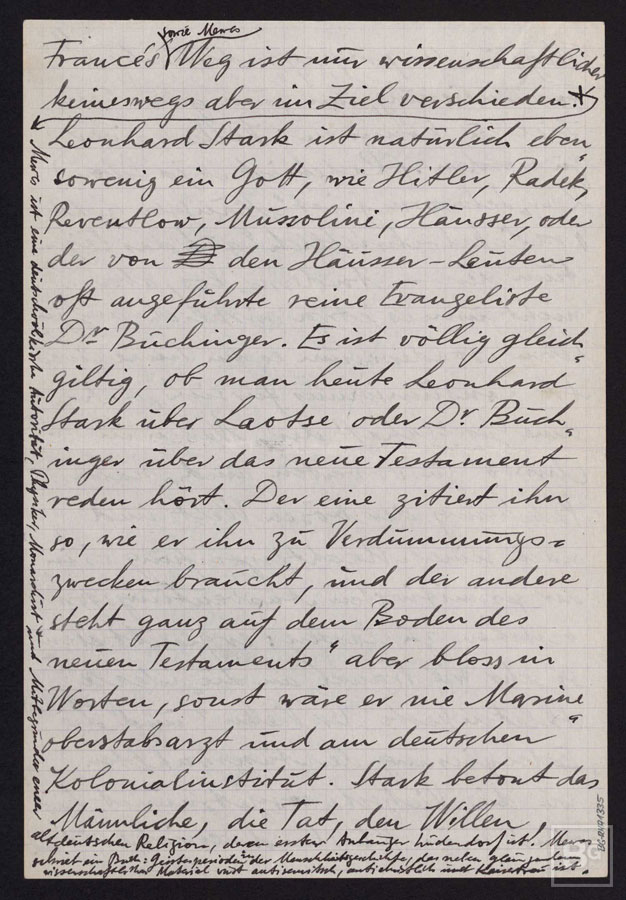 sowie Mewes
Francé's Weg ist nur wissenschaftlicher
keineswegs aber im Ziel verschieden.*
Leonhard Stark ist natürlich eben"
sowenig ein Gott, wie Hitler, Radek,
Reventlow, Mussolini, Häusser, oder
der von den Häusser-Leuten
oft angeführte reine Evangeliste
Dr Buchinger. Es ist völlig gleich"
giltig, ob man heute Leonhard
Stark über Laotse oder Dr Buch"
inger über das neue Testament
reden hört. Der eine zitiert ihn
so, wie er ihn zu Verdummungs=
zwecken braucht, und der andere
steht ganz auf dem Boden des
neuen Testaments" aber bloss in
Worten, sonst wäre er nie Marine"
oberstabsarzt und am deutschen
Kolonialinstitut. Stark betont das
Männliche, die Tat, den Willen,
* Mewes ist eine deutschvölkische Autorität, Physiker, Monarchist und Mitbegründer einer
altdeutschen Religion, deren erster Anhänger Ludendorf ist! Mewes
schrieb ein Buch: der Menschheitsgeschichte, das neben glänzendem
wissenschaftlichen Material antisemitisch, antichristlich und Kaisertreu ist.
BG